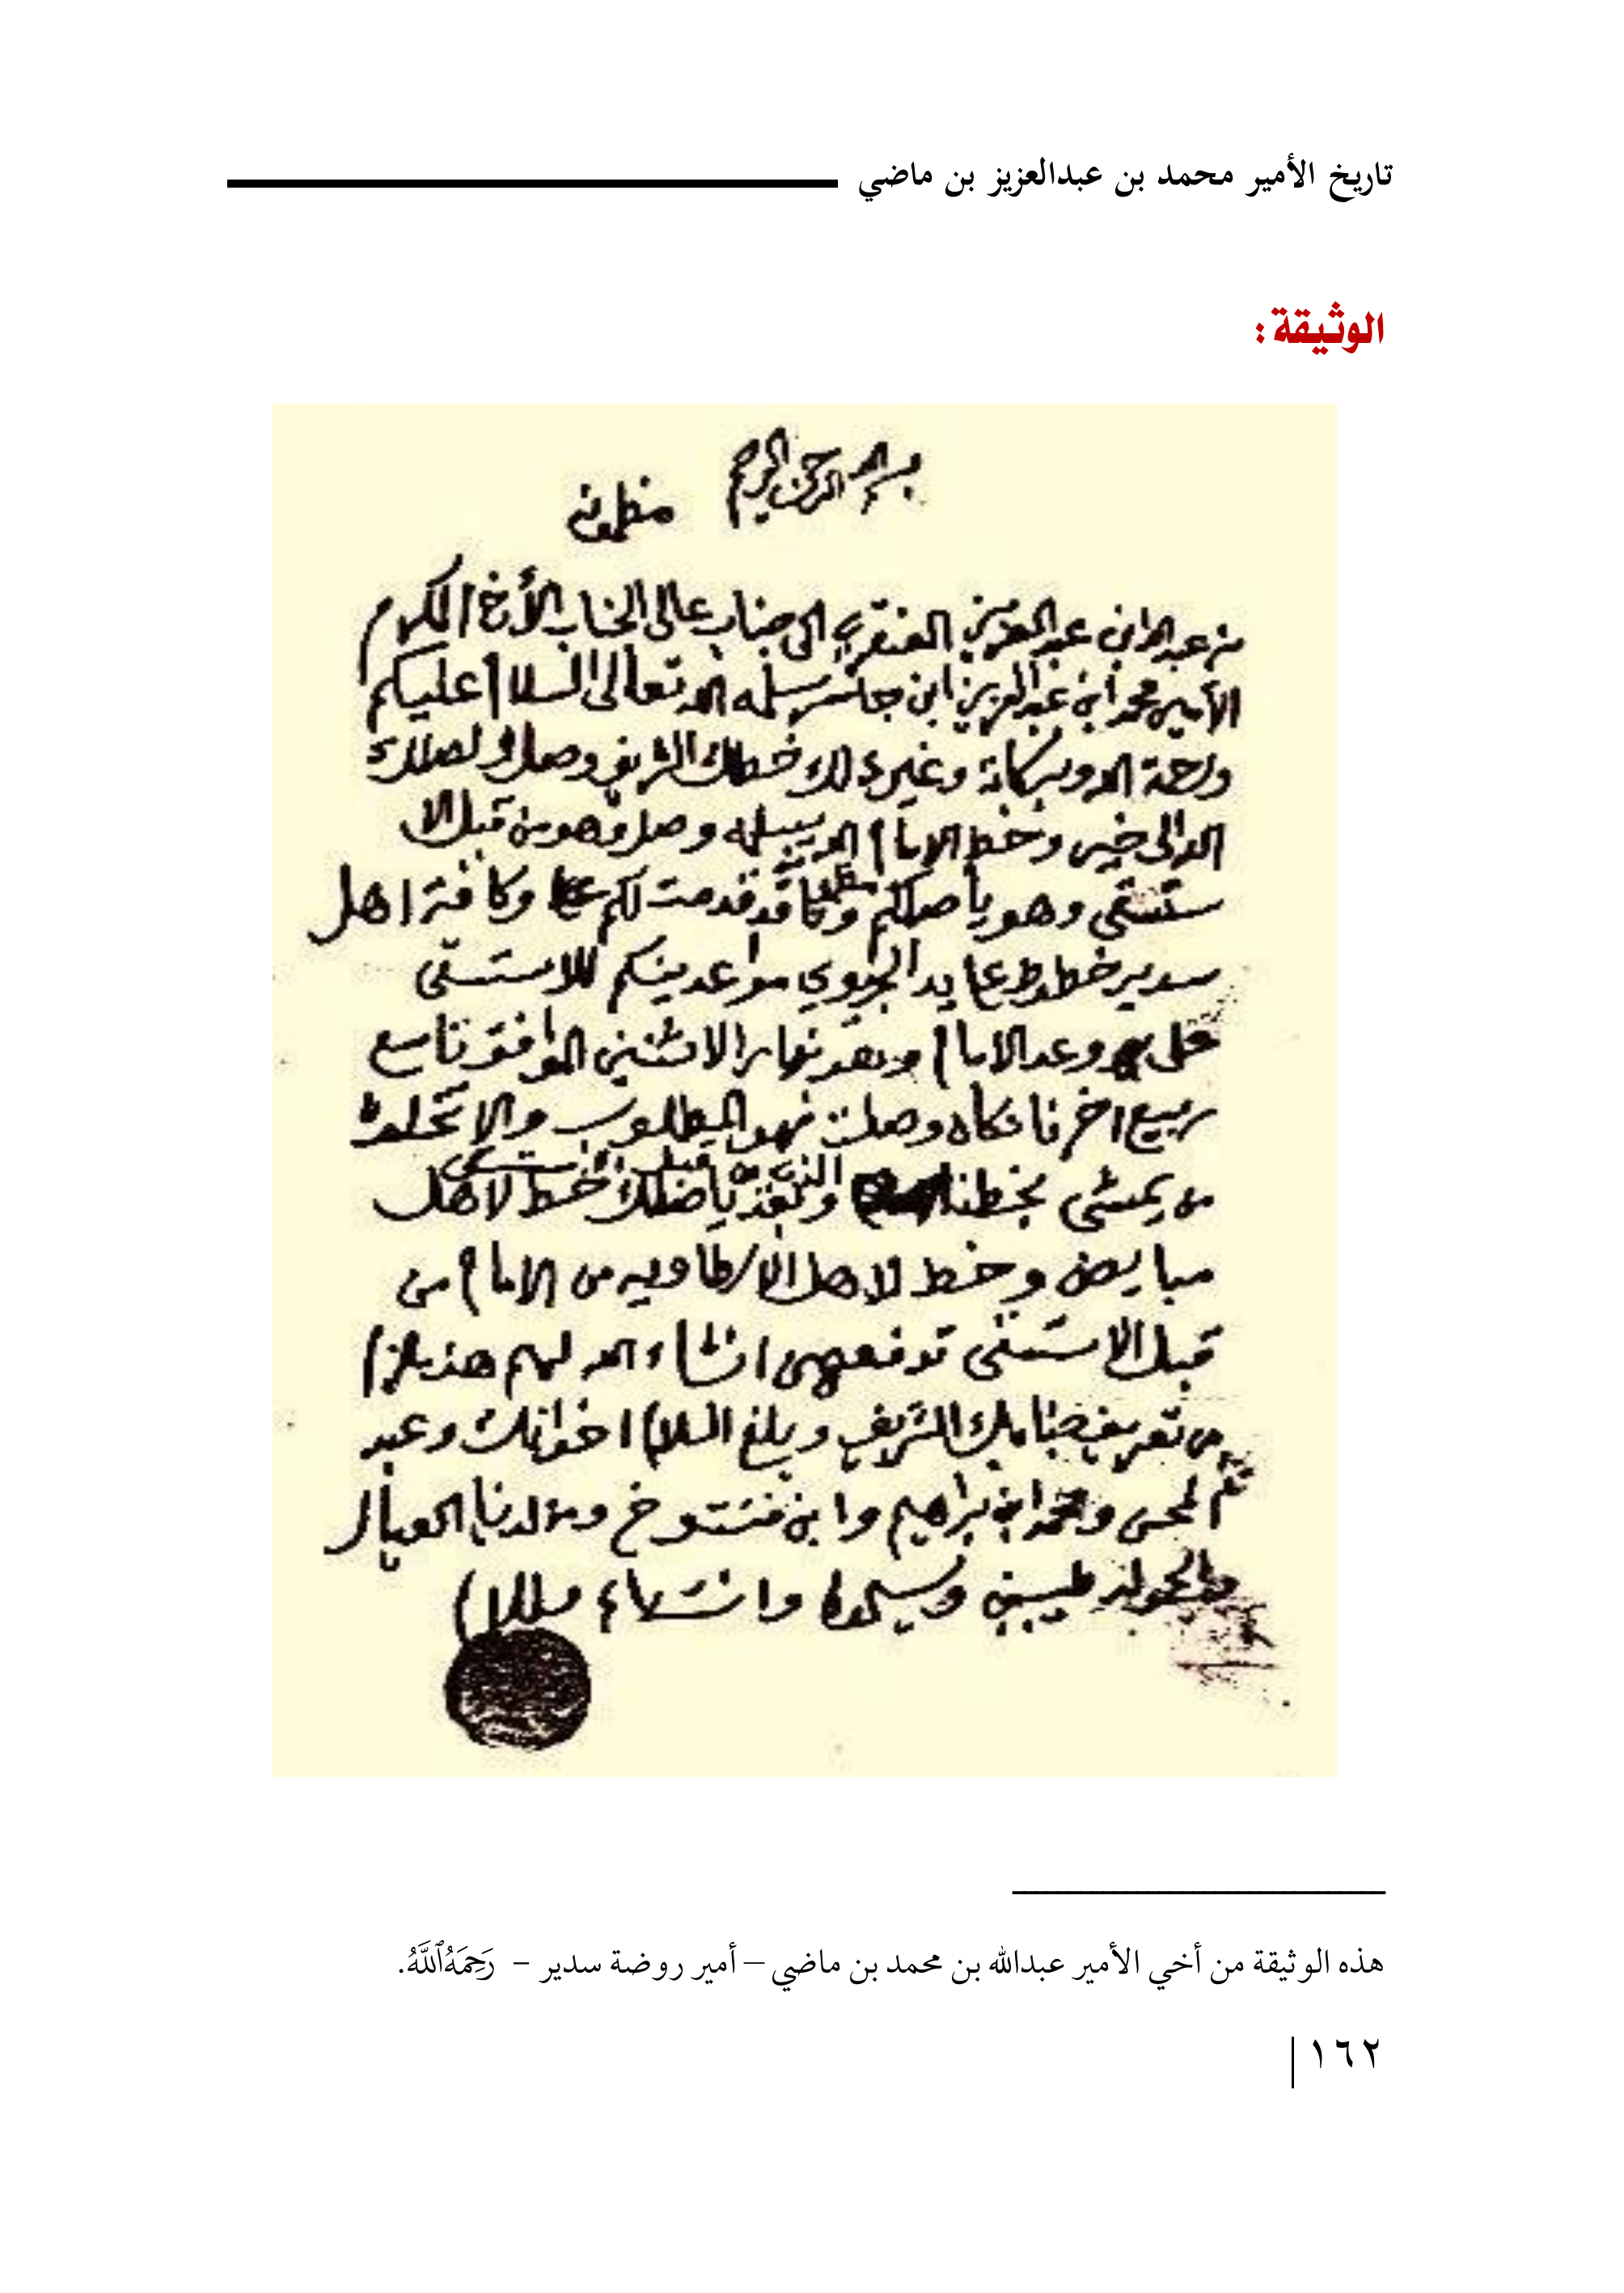 تاريخ الأمير محمد بن عبدالعزيز بن ماضي
الوثيقة:
بسم الله الرحمن الرحيم
مظمونه
من عبدالله ابن عبدالعزيز العنقري الى جناب عالي الجناب الأخ المكرم
الأمير محمد ابن عبدالعزيز ابن جاسر سلمه الله تعالى السلام عليكم
ورحمة الله وبركاته وغير ذالك خطك الشريف وصل اوصلك
الله الى خير وخط الامام الله يسلمه وصل وهو من قبل الا
ستسقى وهو ياصلكم قد قدمت لكم وكافة اهل
سدير خطوط عايد مواعدينكم للاستسقى
على وعد الامام وبعد نهار الاثنين الموافق تاسع
ربيع اخر فا وصلت فهو المطلوب والا
من يمشي بخطنا والذي خط لاهل
مبايض وخط لاهل الارطاويه من الامام من
قبل الاستسقى تدفعهن انشاء الله لهم هذ مالزم
من تعريف جنابك الشريف وبلغ السلام اخوانك وعبد
ومحمد ابن براهيم وابن فنتوخ ومن لدينا العيال
طيبين وانت سالم والسلام
هذه الوثيقة من أخي الأمير عبدالله بن محمد بن ماضي – أمير روضة سدير – رَحِمَهُ ٱللَّهُ.
١٦٢